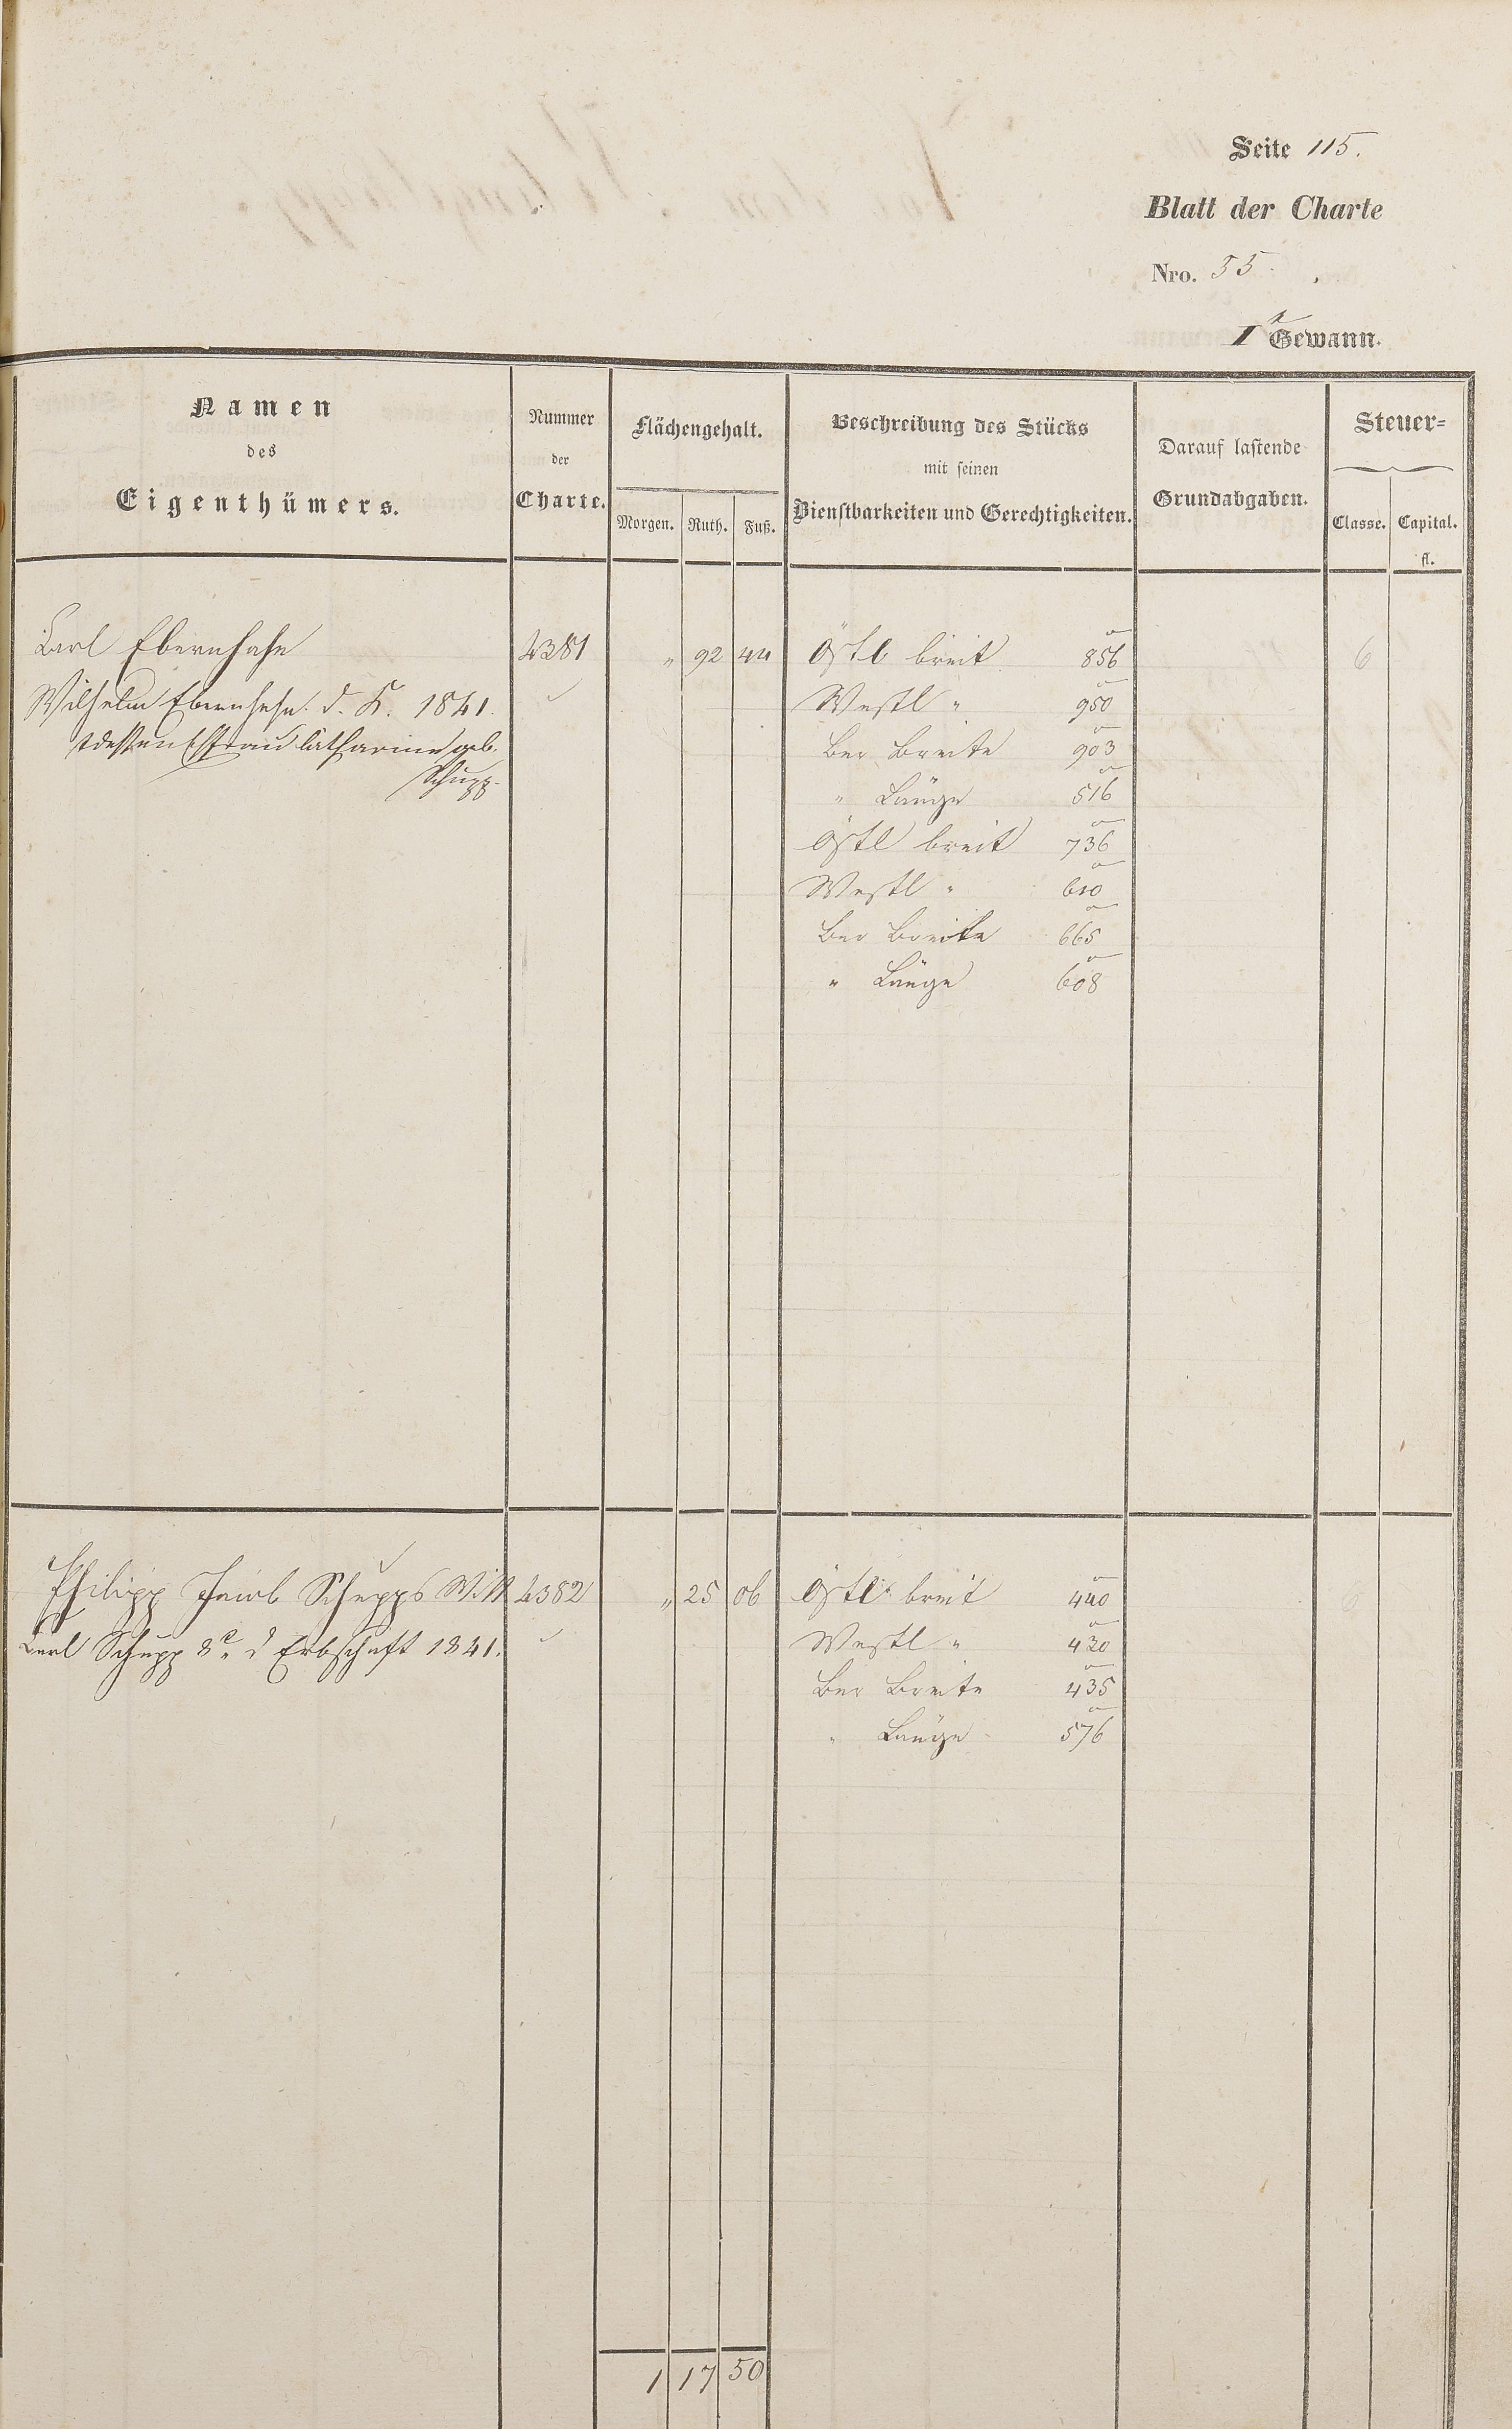 Seite 115.
Blatt der Charte
Nro. 55.
I Gewann.
Namen
des
Eigenthümers.
Nummer
der
Charte.
Flächengehalt.
Morgen. Ruth. Fuß.
Beschreibung des Stücks
mit seinen
Dienstbarkeiten und Gerechtigkeiten.
Darauf lastende
Grundabgaben.
Steuer-
Classe. Capital.
fl.
Carl Ebernhahn 4381 " 92 44 Östl breit 856 6
Wilhelm Ebernhahn d. K. 1841. Westl " 950
dessen Ehfrau Catharine geb. Ber Breite 903
Schupp " Länge 516
Östl breit 736
Westl " 610
Ber Breite 665
" Länge 608
Philipp Jacob Schupps Wtt 4382 " 25 06 Östl breit 440 6
Carl Schupp 8r d Erbschaft 1841. Westl " 430
Ber Breite 435
" Länge 576
1 17 50